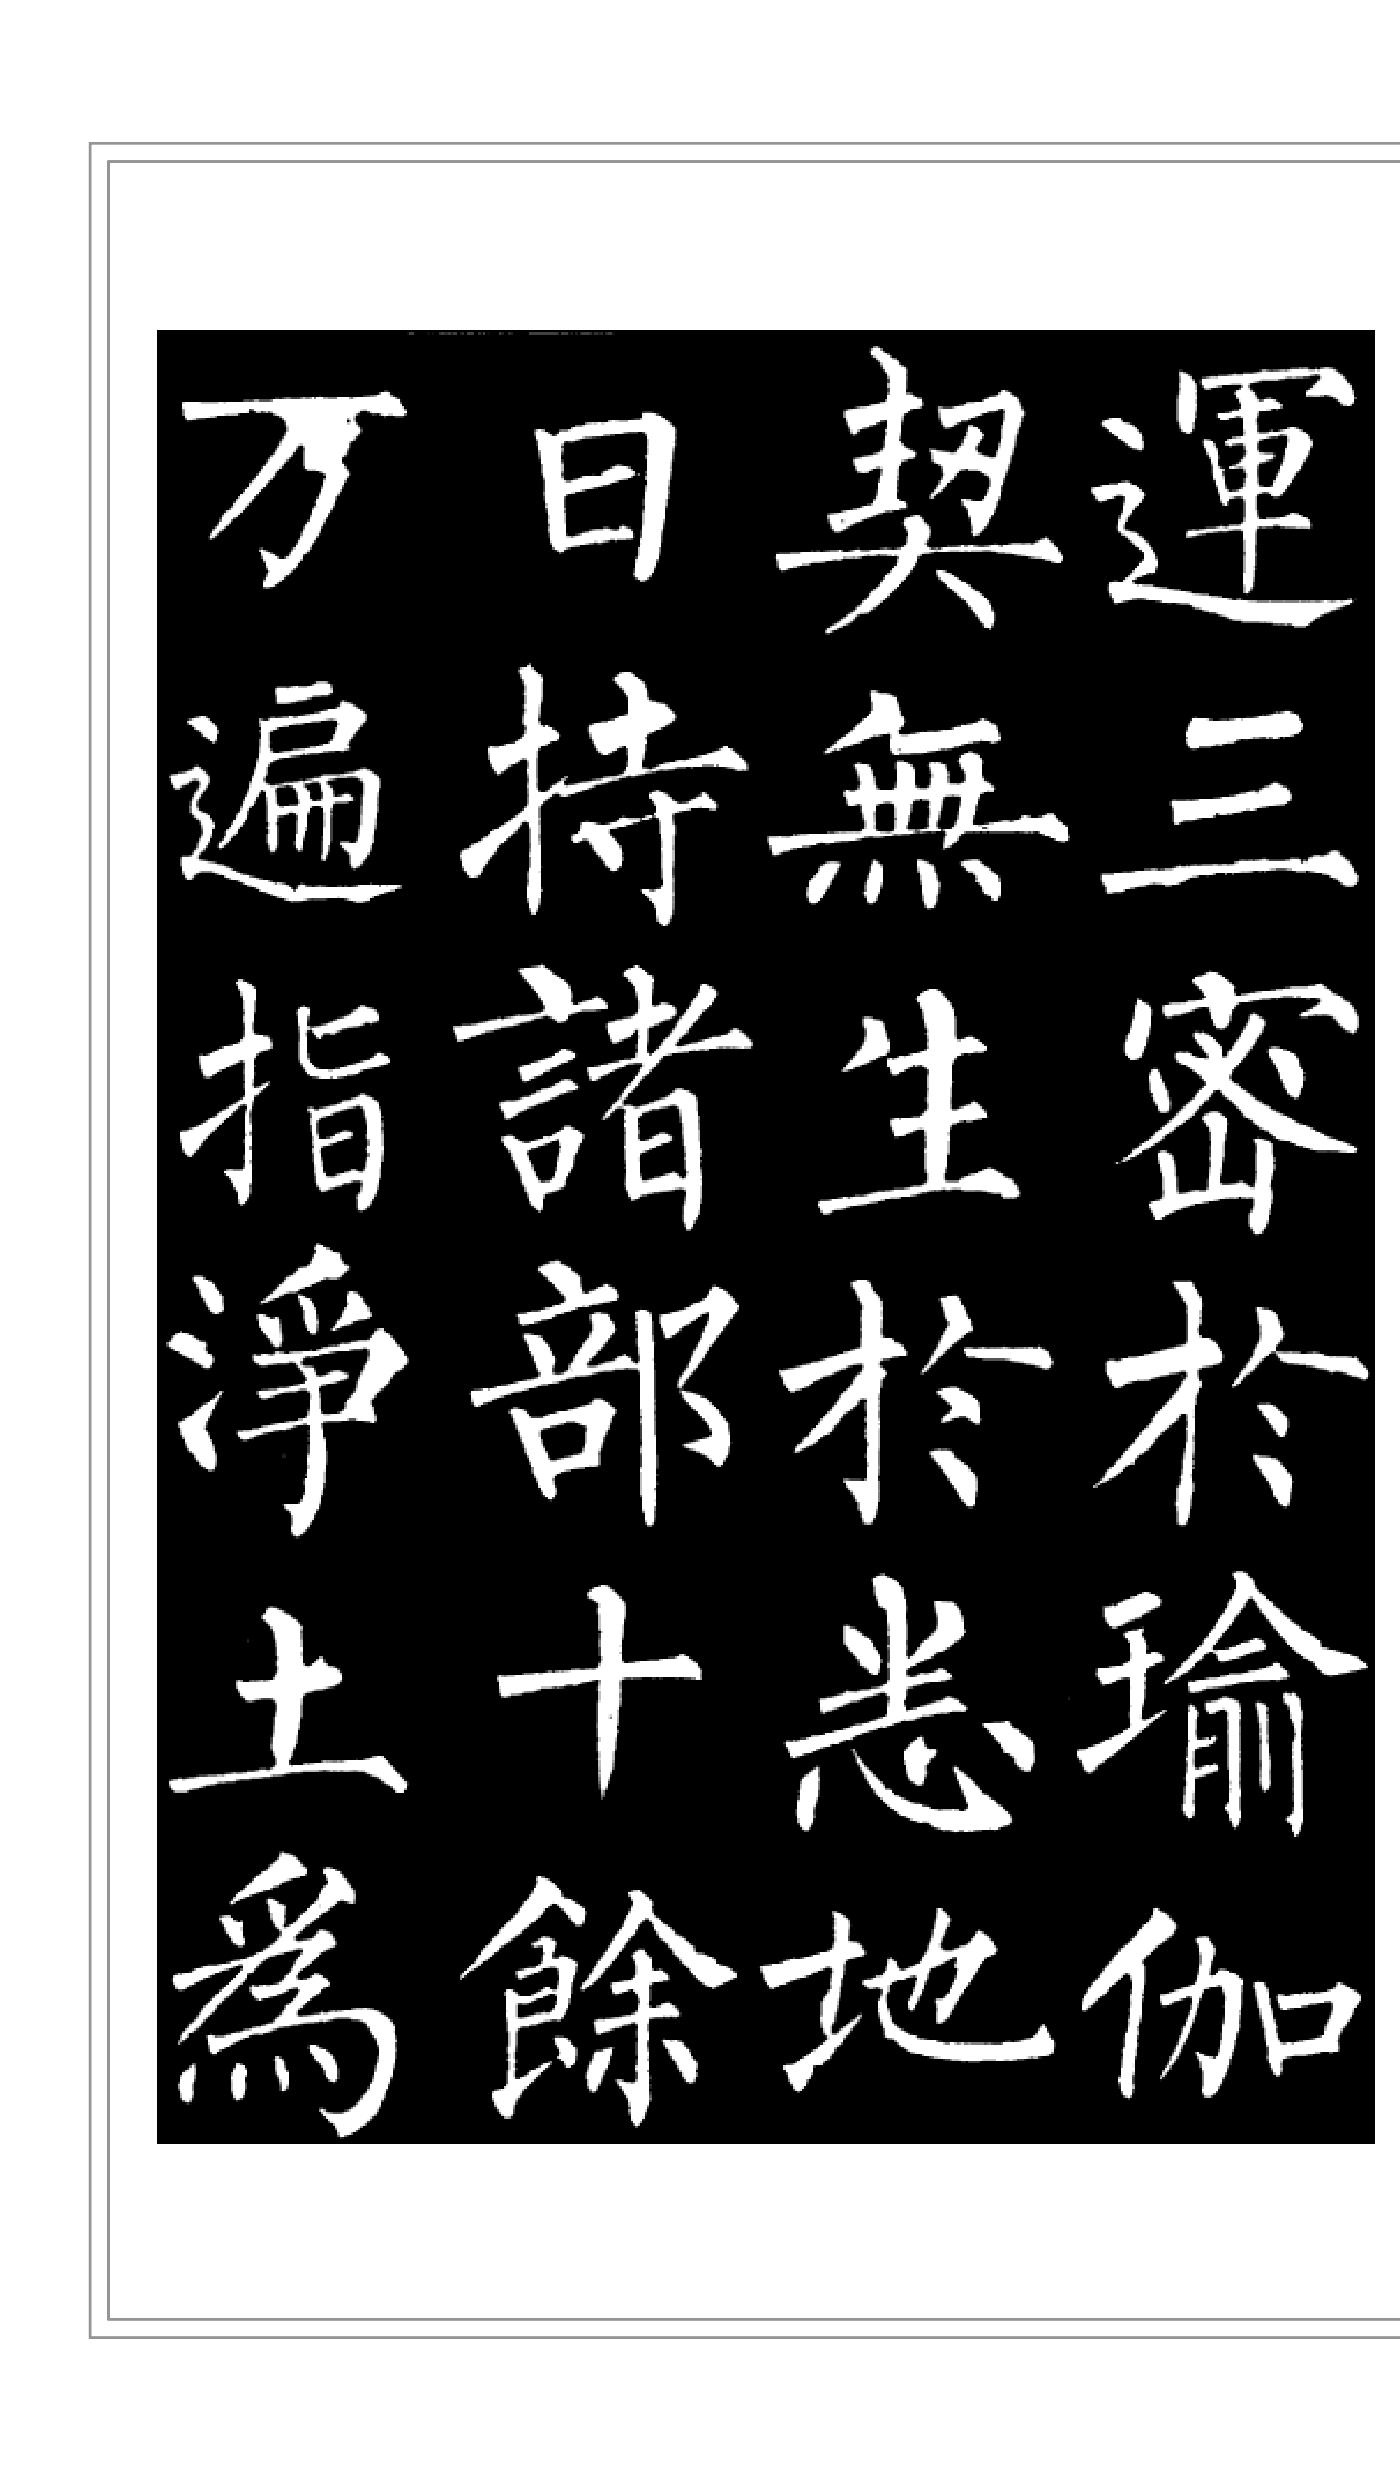 運三密於瑜伽
契無生於悉地
日持諸部十餘
万遍指淨土爲